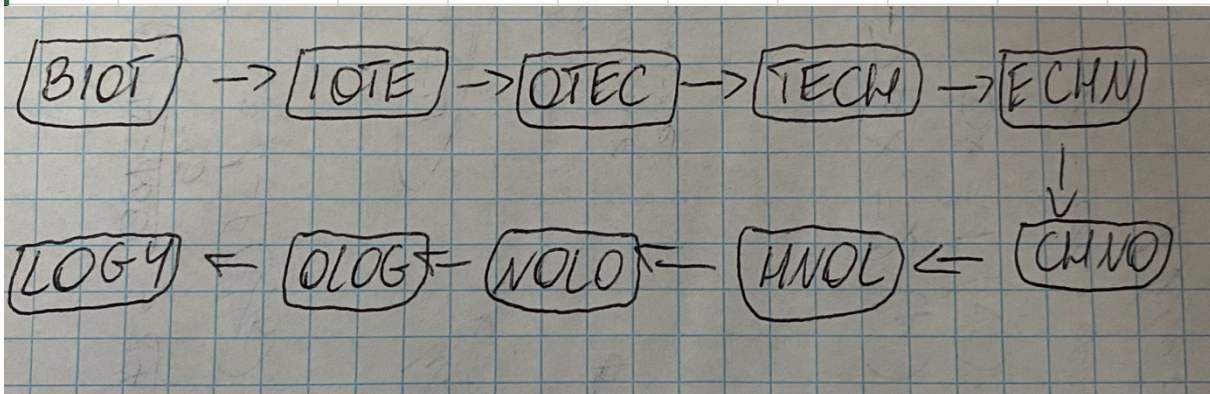 BIOT -> IOTE -> OTEC -> TECH -> ECHN
LOGY <- OLOG <- NOLO <- HNOL <- CHNO